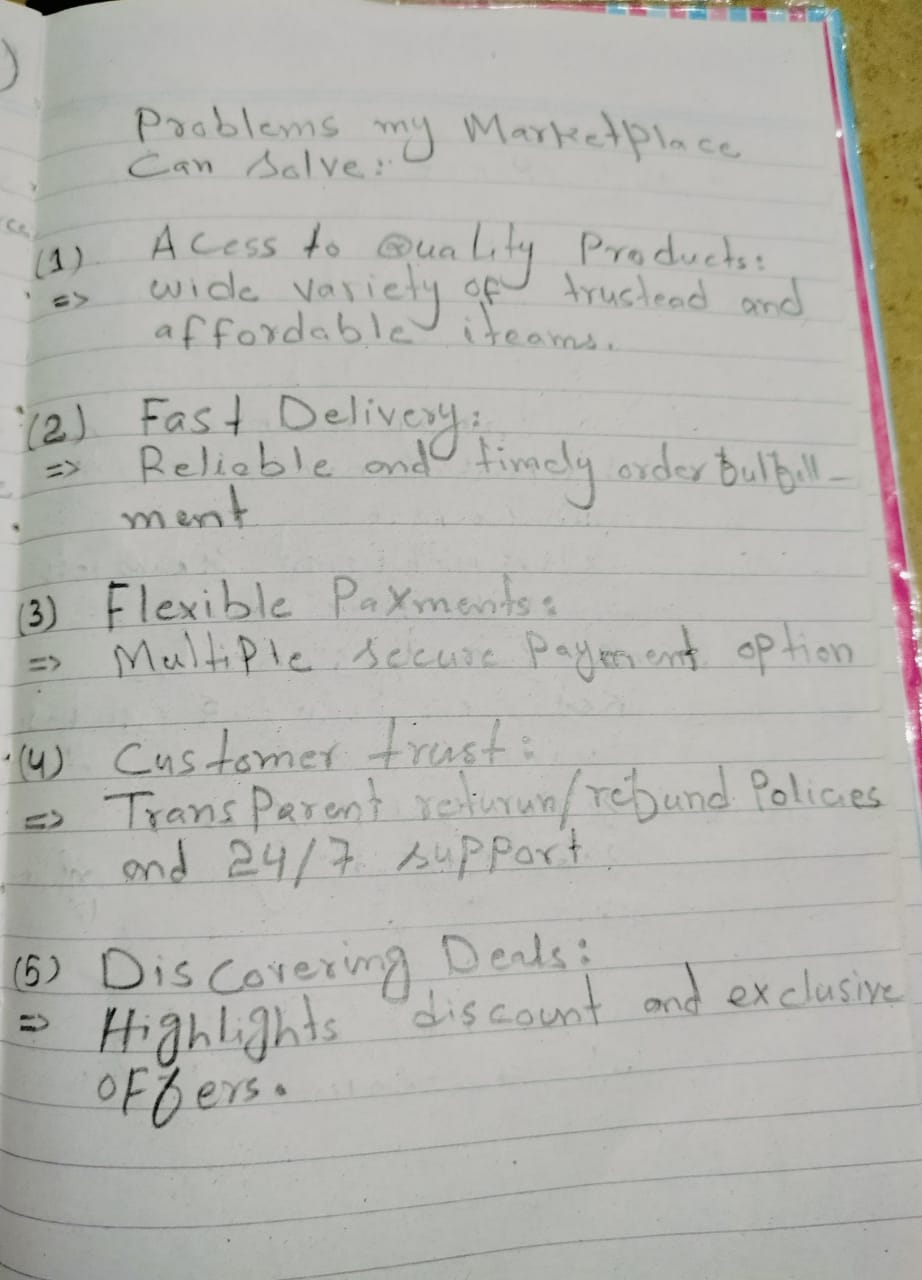 Problems my Marketplace
Can Solve:
(1) Acess to Quality Products:
=> wide variety of trustead and
affordable iteams.
(2) Fast Delivery:
=> Relieble and timely order fulfill-
ment
(3) Flexible Payments:
=> Multiple secure Payment option
(4) Customer trust:
=> TransParent returun/refund Policies
and 24/7 support
(5) DisCovering Deals:
=> Highlights discount and exclusive
offers.